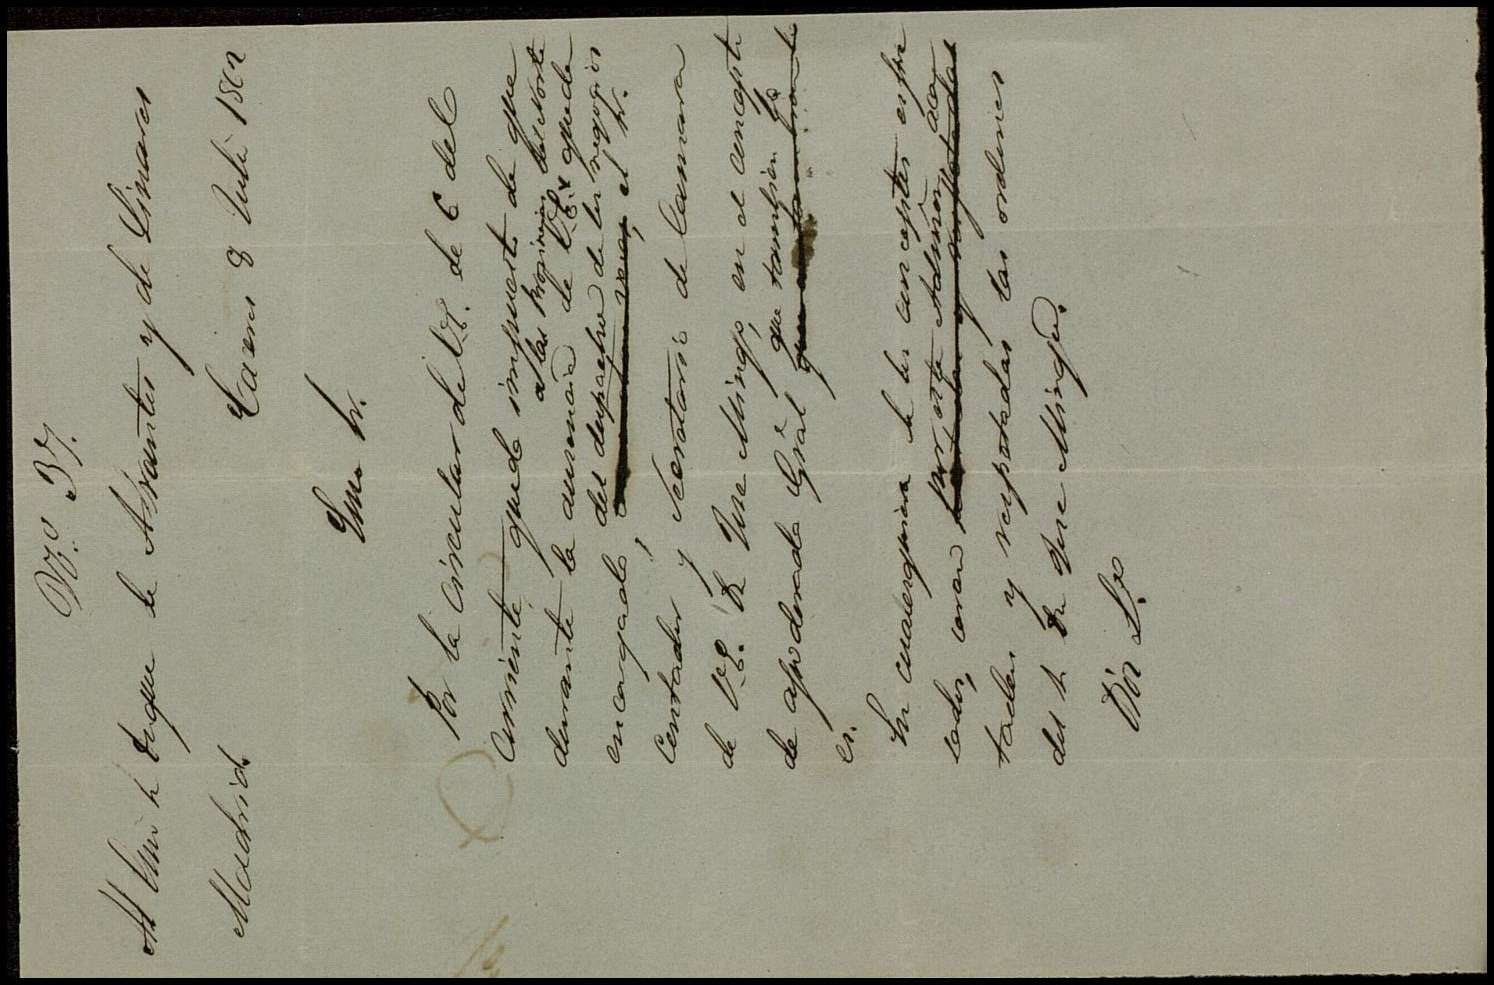 N.º 37.
Al Exmo Sr Duque de Abrantes y de Linares
Madrid.
8 Julio 1862
Exmo Sr.
Por la circular de V.E. de 6 del
corriente quedo impuesto de que
a las Provincias del Norte
durante la ausencia de V.E. queda
encargado del despacho de los negocios
el Sr.
Contador y Secretario de Camara
de V.E. Dn Jose Mingo, en el concepto
de apoderado Gral que también lo
es.
En cualesquiera de los conceptos espre
sados, seran por esta Admon acatadas
y respetadas las ordenes
del Sr Dn Jose Mingo.
Dios